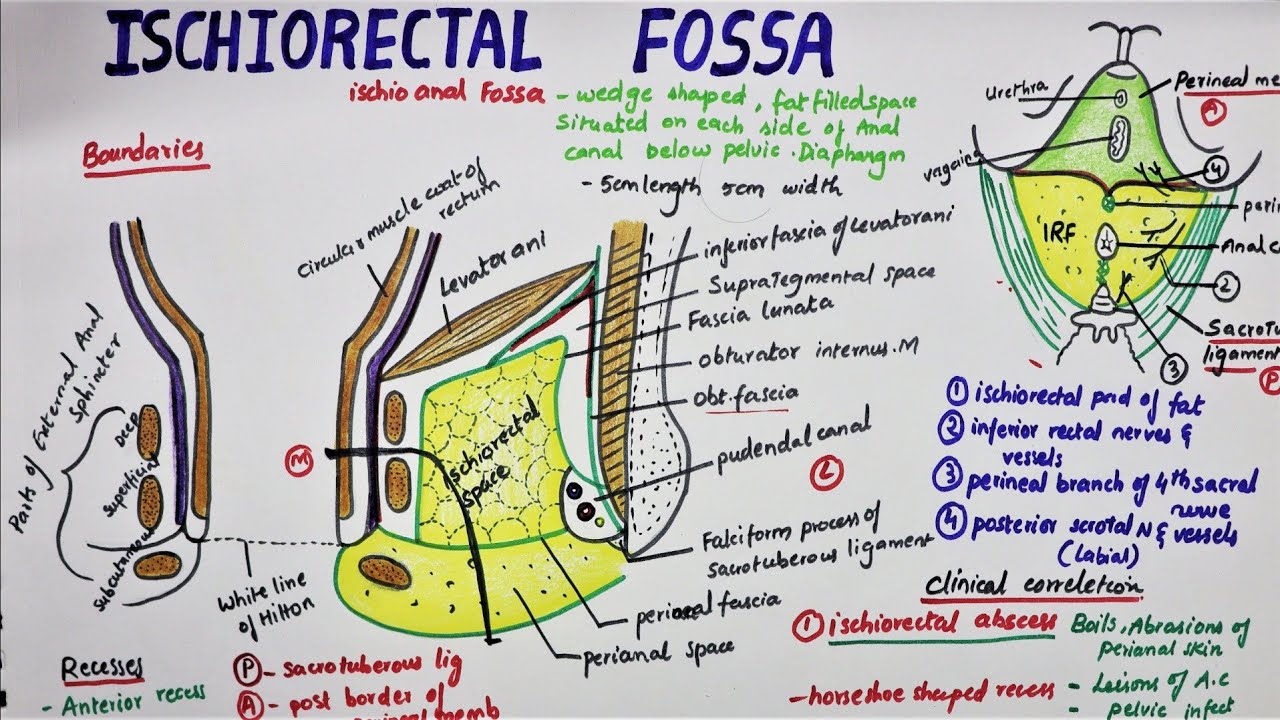 ISCHIORECTAL FOSSA
ischio anal Fossa - wedge shaped, fat filled space
Situated on each side of Anal
canal below pelvic . Diaphargm
- 5cm length 5cm width
Boundaries
Circular muscle coat of
rectum
Levator ani
inferior fascia of Levator ani
Suprategmental space
Fascia lunata
obturator internus. M
obt. fascia
pudendal canal
Falciform process of
sacrotuberous ligament
perianal fascia
perianal space
ischiorectal
space
M
L
Parts of External Anal
Sphincter
Deep
Superficial
Subcutaneous
White line
of Hilton
Recesses
- Anterior recess
P - sacrotuberous lig
A - post border of
perineal memb
urethra
Perineal me
A
vagina
4
perin
IRF
Anal c
2
Sacrotu
ligament
P
3
1 ischiorectal pad of fat
2 inferior rectal nerves &
vessels
3 perineal branch of 4th sacral
nerve
4 posterior scrotal N & vessels
(Labial)
Clinical correletion
1 ischiorectal abscess
Boils, Abrasions of
perianal skin
- horseshoe shaped recess
- Leisons of A.C
- pelvic infect